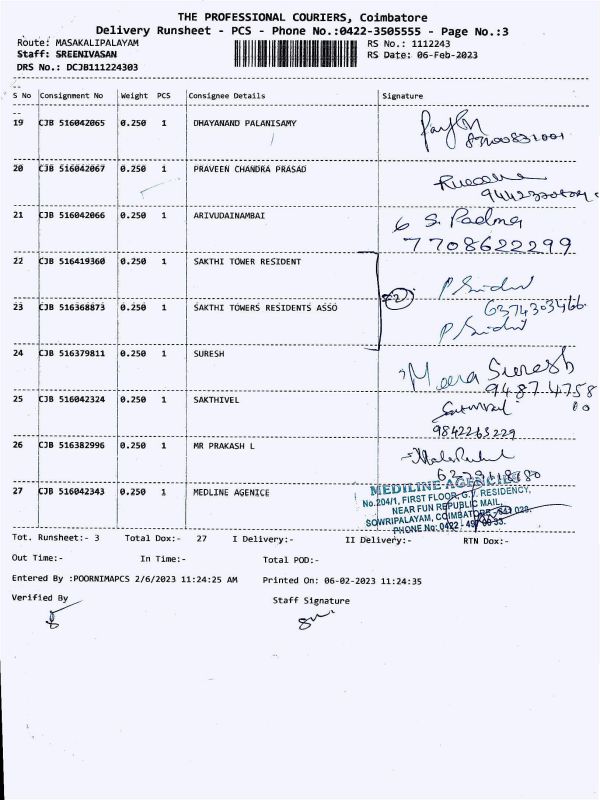 THE PROFESSIONAL COURIERS, Coimbatore
Delivery Runsheet - PCS - Phone No.:0422-3505555 - Page No.:3
Route: MASAKALIPALAYAM RS No.: 1112243
Staff: SREENIVASAN RS Date: 06-Feb-2023
DRS No.: DCJB111224303
S No Consignment No Weight PCS Consignee Details Signature
19 CJB 516042065 0.250 1 DHAYANAND PALANISAMY
20 CJB 516042067 0.250 1 PRAVEEN CHANDRA PRASAD
21 CJB 516042066 0.250 1 ARIVUDAINAMBAI S. Padma
7708622299
22 CJB 516419360 0.250 1 SAKTHI TOWER RESIDENT
6374303466
23 CJB 516368873 0.250 1 SAKTHI TOWERS RESIDENTS ASSO
24 CJB 516379811 0.250 1 SURESH Meera Suresh
94874758
00
25 CJB 516042324 0.250 1 SAKTHIVEL
9842265229
26 CJB 516382996 0.250 1 MR PRAKASH L
27 CJB 516042343 0.250 1 MEDLINE AGENICE
MEDILINE AGENCIES
No.204/1, FIRST FLOOR, G.V. RESIDENCY,
NEAR FUN REPUBLIC MAIL,
SOWRIPALAYAM, COIMBATORE - 641 028.
PHONE No: 0422 -
Tot. Runsheet:- 3 Total Dox:- 27 I Delivery:- II Delivery:- RTN Dox:-
Out Time:- In Time:- Total POD:-
Entered By :POORNIMAPCS 2/6/2023 11:24:25 AM Printed On: 06-02-2023 11:24:35
Verified By Staff Signature